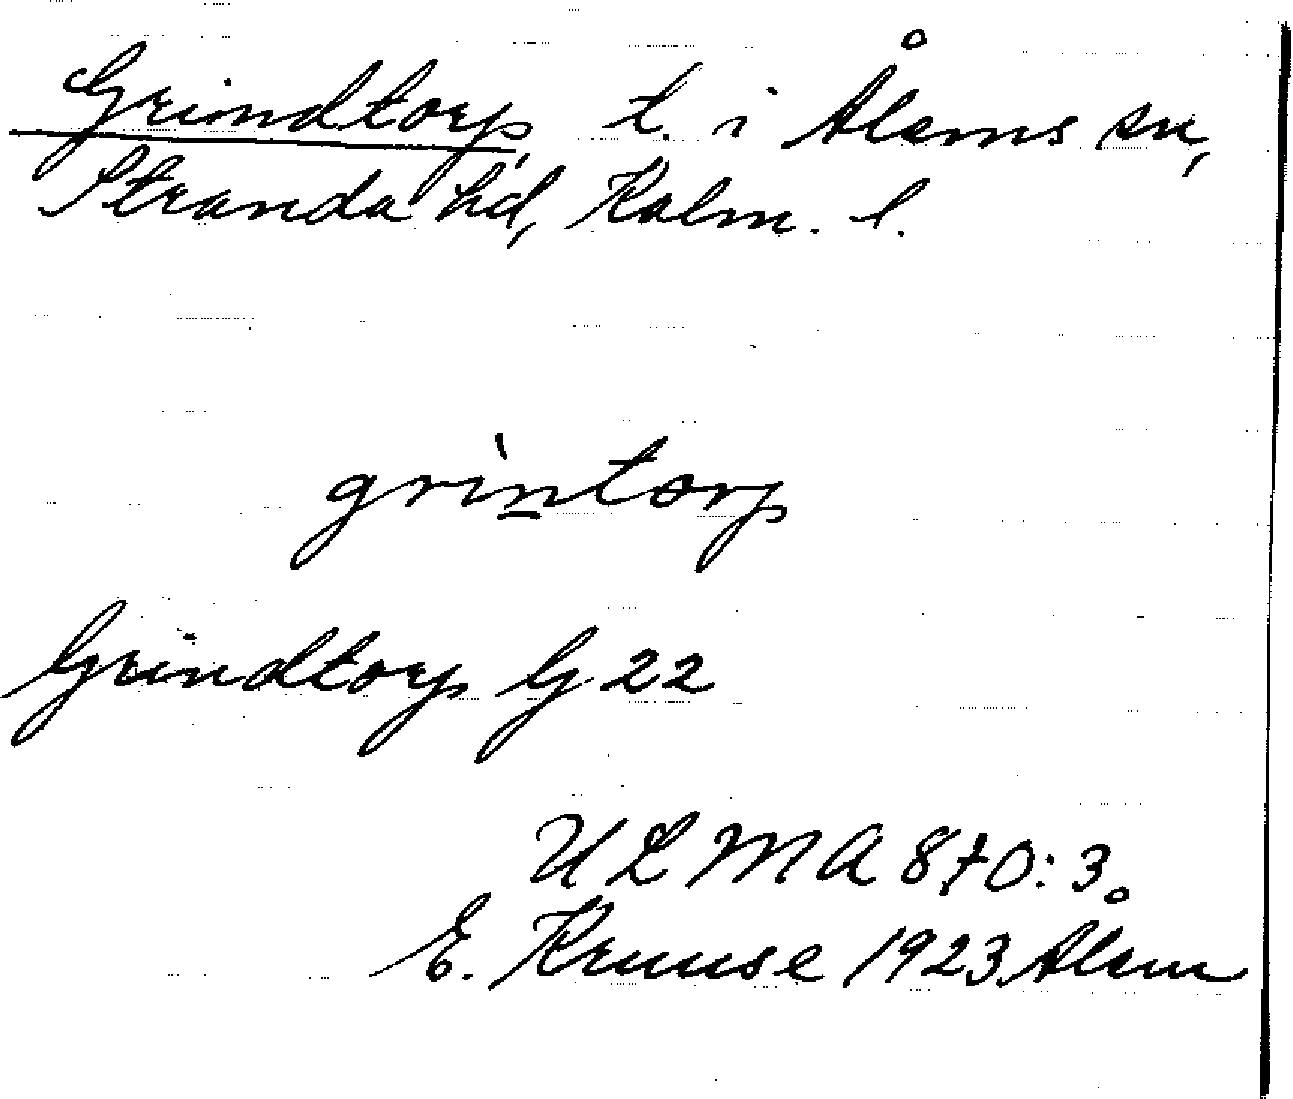 Grindtorp, t. i Ålems sn,
Stranda hd, Kalm. l.
grìntorp
Grindtorp G 22
ULMA 870:3
E. Kruuse 1923 Ålem